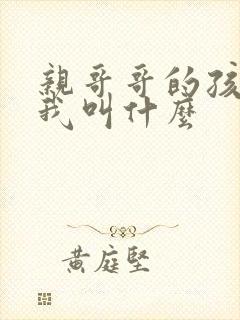 親哥哥的孩
我叫什麼
黃庭堅